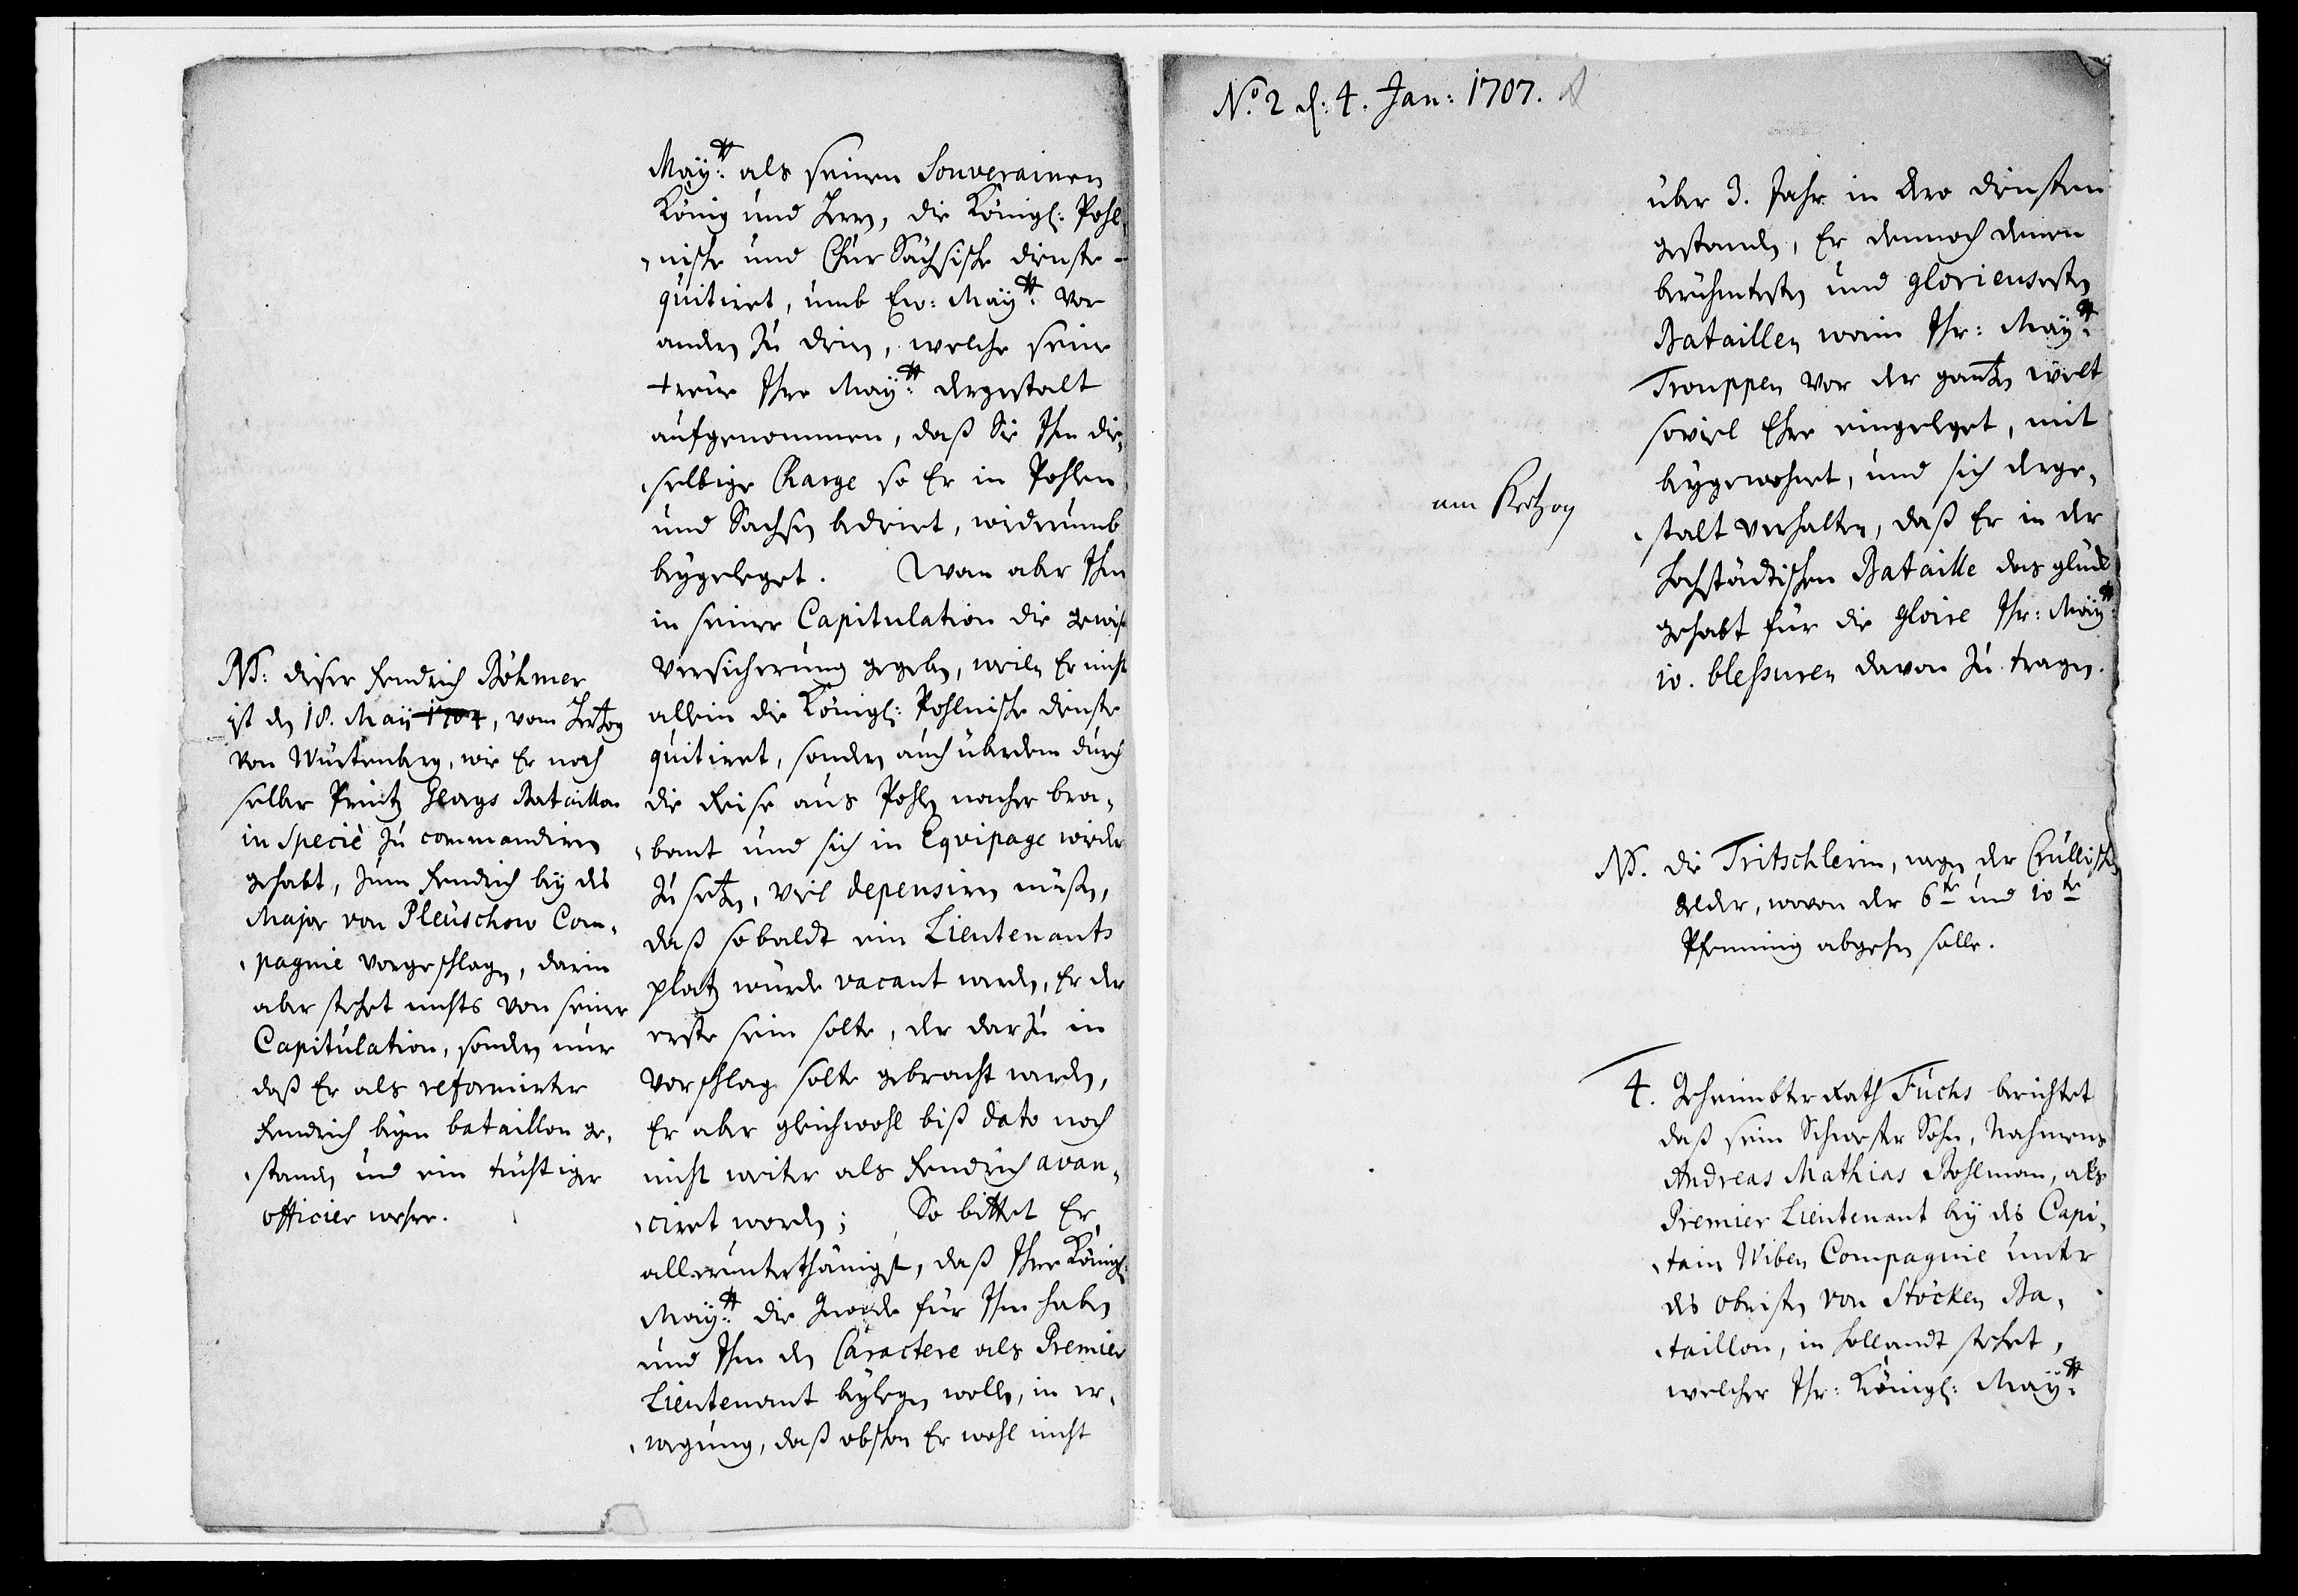 Maytt: als seinen Souverainen
König und Herrn, die Königl: Pohl,
,nische und Chur Sächsische dienste
quitiret, umb Ew: Maytt: vor
andern zu dien, welche seine
treüe Ihre Maytt: dergestalt
aufgenommen, daß Sie Ihm die,
,selbige Charge so Er in Pohlen
und Sachsen bedient, wiederumb
beygeleget. Wan aber Ihm
in seiner Capitulation die gewiße
Versicherung gegeben, weiln Er nicht
allein die Königl: Pohlnische dienste
quitiret, sondern auch überdem durch
die Reise aus Pohln nacher bra,
,bant und sich in Eqvipage wieder
zu setzen, viel depensiren müßen,
daß sobaldt ein Lieutenants
platz würde vacant werden, Er der
erste sein solte, der darzu in
Vorschlag solte gebracht werden,
Er aber gleichwohl biß dato noch
nicht weiter als Fendrich avan,
,ciret worden; So bittet Er
allerunterthänigst, daß Ihre Königl:
Maytt: die Gnade für Ihm haben
und Ihm den Caractere als Premier
Lieutenant beylegen wolle, in er,
,wegung, daß obschon Er wohl nicht
NB: dieser Fendrich Böhmer
ist den 18. May 1704, vom Hertzog
von Würtenberg, wie Er noch
selber Printz Georgs Bataillon
in Specie zu commandiren
gehabt, zum Fendrich bey des
Major von Pleuschow Com,
,pagnie vorgeschlagen, darin
aber stehet nichts von seiner
Capitulation, sondern nur
daß Er als reformirter
Fendrich beym bataillon ge,
,standen und ein tüchtiger
officier wehre.
No. 2 d: 4. Jan: 1707.
über 3. Jahr in dero diensten
gestanden, Er dennoch denen
berühmtesten und glorieusesten
Bataillen worin Ihr: Maytt:
Trouppen vor der gantzen welt
soviel Ehre eingeleget, mit
beygewohnet, und sich derge,
,stalt verhalten, daß Er in der
Hochstädtischen Bataille das glück
gehabt für die gloire Ihr: Maytt:
10. bleßuren davon zu tragen.
am Hertzog
NB. die Tritschlerin, wegen der Crullischen
gelder, wovon der 6te und 10te
Pfenning abgehen solle.
4. Geheimbter Rath Fuchs berichtet
daß sein Schwester Sohn, Nahmens
Andreas Mathias Bohlman, als
Premier Lieutenant bey des Capi,
,tain Wiben Compagnie unter
des obristen von Stöcken Ba,
,taillon, in Hollandt stehet,
welcher Ihr: Königl: Maytt: